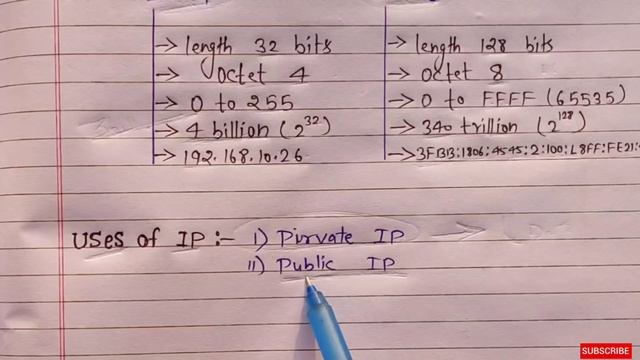 → length 32 bits
→ octet 4
→ 0 to 255
→ 4 billion (2^32)
→ 192.168.10.26
→ length 128 bits
→ octet 8
→ 0 to FFFF (65535)
→ 340 trillion (2^128)
→ 3FBB:1806:4545:2:100:L8FF:FE21:
Uses of IP :- i) Pirvate IP
ii) Public IP
SUBSCRIBE